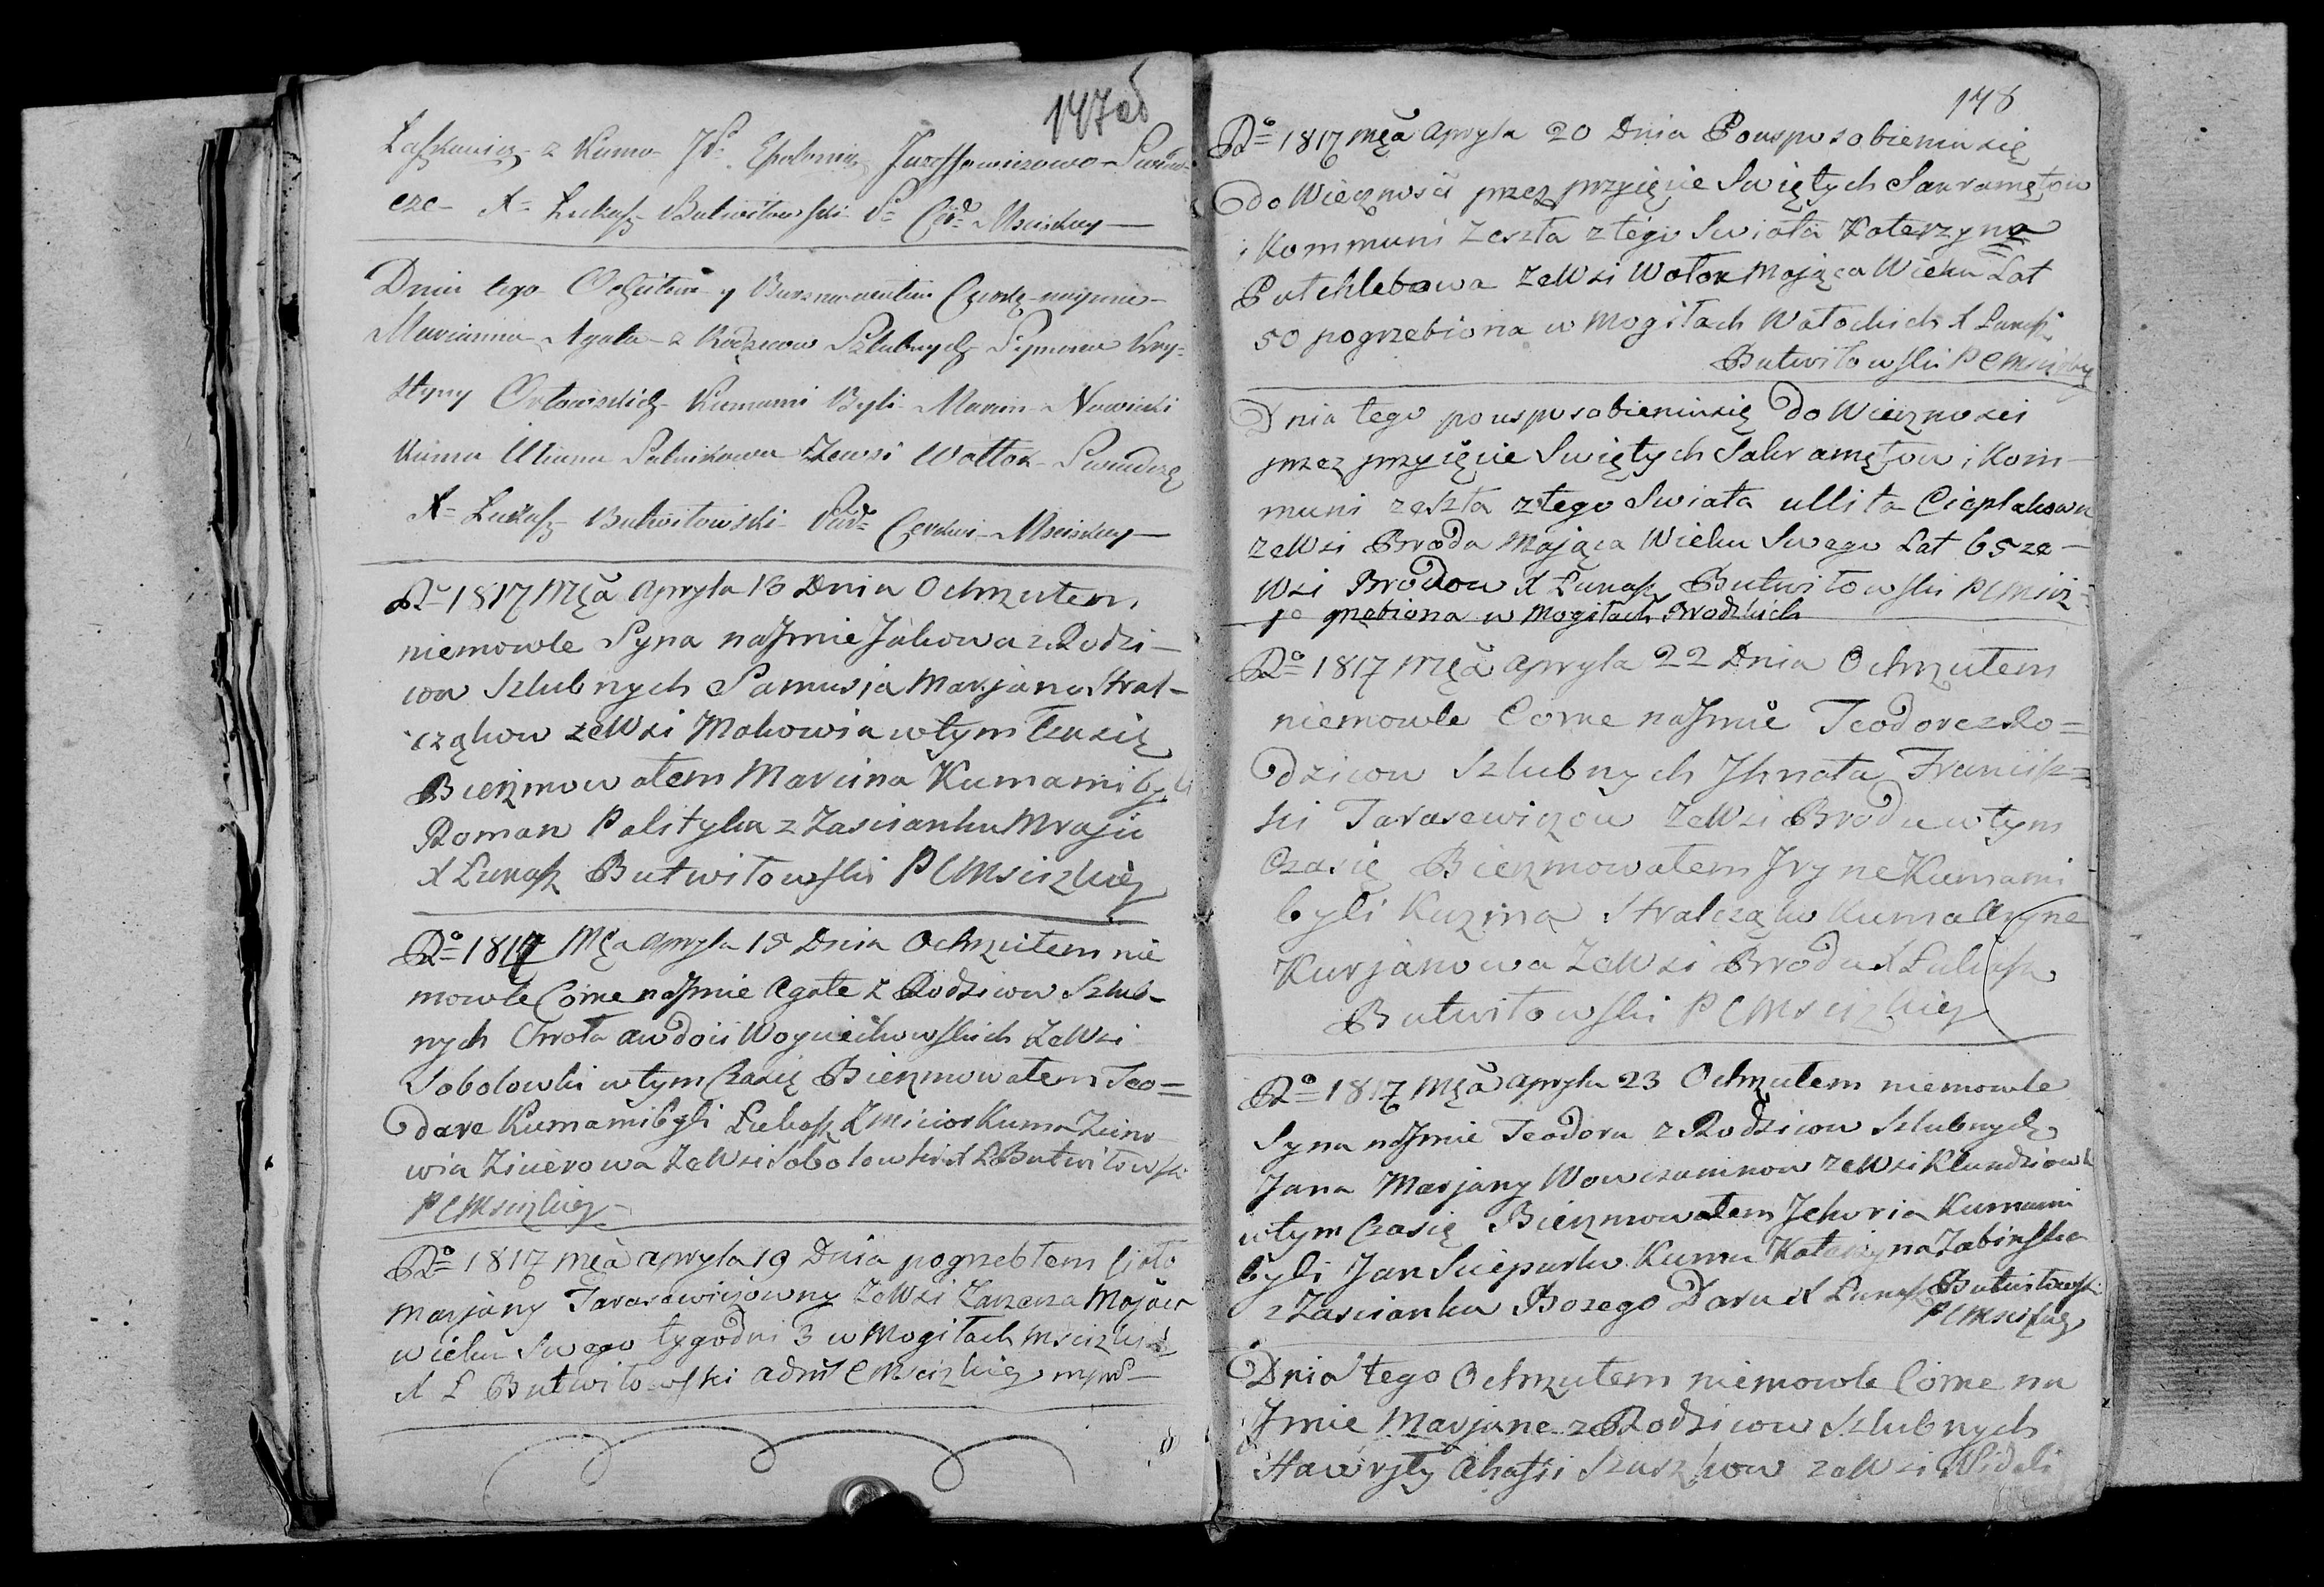 147 об
Łaszkiewicz z Kumo JP. Epolonia Juzeffowiczowo Swiad-
cze X= Łukasz Butwiłowski P= C Msciskey
Dnia tego Ochsciłem y Burzmowałem Curke na imie
Marianna Agata z Rodzicow Szlubnych Symona Kry=
styny Orłowskich Kumami Byli Marcin Nowicki
Kuma Uliana Zewsi Wołtok Swiadczę
X= Łukasz Butwiłowski Cerkwi Msciskey
Ro= 1817 Męa Apryla 13 Dnia Ochrzciłem
niemowle Syna na Jmie Jakowa z Rodzi-
cow Szlubnych Samusia Marjana Stral-
cząkow ze Wsi Makowia w tym Czasię
Bierzmowałem Marcina Kumami byli
Roman Palityka z Zascianku Mraju
X Łukasz Butwiłowski P C Msciskiey
Ro= 1817 Męa Apryla 15 Dnia Ochrzciłem nie
mowle Corne na Jmie Agate z Rodzicow Szlub-
nych Chrola Awdoii Woyciechowskich ze Wsi
Sobolowki w tym Czasię Bierzmowałem Teo=
dore Kumami byli Łukasz Zmicior Kuma Zieno-
wia Ziucrowa ze Wsi Sobolowki X Ł Butwiłowski
P C Msciskiey
Ro= 1817 Męa Apryla 19 Dnia pogrzebłem Ciało
Marjany Tarasewiczowny ze Wsi Zarzecza Mające
wieku Swego tygodni 3 w Mogiłach Msciskich
X Ł Butwiłowski adm C Msciskiey mpp
148
Ro= 1817 Męa Apryla 20 Dnia Po usposobieniu się
do Wiecznosci przez przyięcie Swiętych Sakramętow
i Kommuni Zeszła z tego Swiata Katerzyna
Putchlebowa ze Wsi Wołok Mająca Wieku Lat
50 pogrzebiona w Mogiłach Wołockich X Łukasz
Butwiłowski P C Msciskiey
Dnia tego po usposobieniu się do Wiecznosci
przez przyięcie Swiętych Sakramętow i Kom-
muni zeszła z tego Swiata Ullita Cieplakowa
ze Wsi Broda Mająca Wieku Swego Lat 65 ze-
Wsi Brodow X Łukasz Butwiłowski P C Msciz=
pogrzebiona w Mogiłach Brodzkich
Ro= 1817 Męa Apryla 22 Dnia Ochrzciłem
niemowle Corne na Jmie Teodore z Ro=
dzicow Szlubnych Jhnata Francisz=
ki Tarasewiczow ze Wsi Brodu w tym
Czasię Bierzmowałem Jryne Kumami
byli Kuzma Stralcząk Kuma Aryna
Kurjanowa ze Wsi Brodu X Łukasz
Butwiłowski P C Msciskiey
Ro= 1817 Męa Apryla 23 Ochrzciłem niemowle
Syna na Jmie Teodora z Rodzicow Szlubnych
Jana Marjany Wowczaninow ze Wsi Klundziowk
w tym Czasię Bierzmowałem Jehoria Kumami
byli Jan Sciepurko Kuma Katarzyna Zabinska
z Zascianku Bozego Daru X Łukasz Butwiłowski
P C Msciskiey
Dnia tego Ochrzciłem niemowle Corne na
Jmie Marjane z Rodzicow Szlubnych
Hawryły Ahafii Szuszkow ze Wsi Widoli